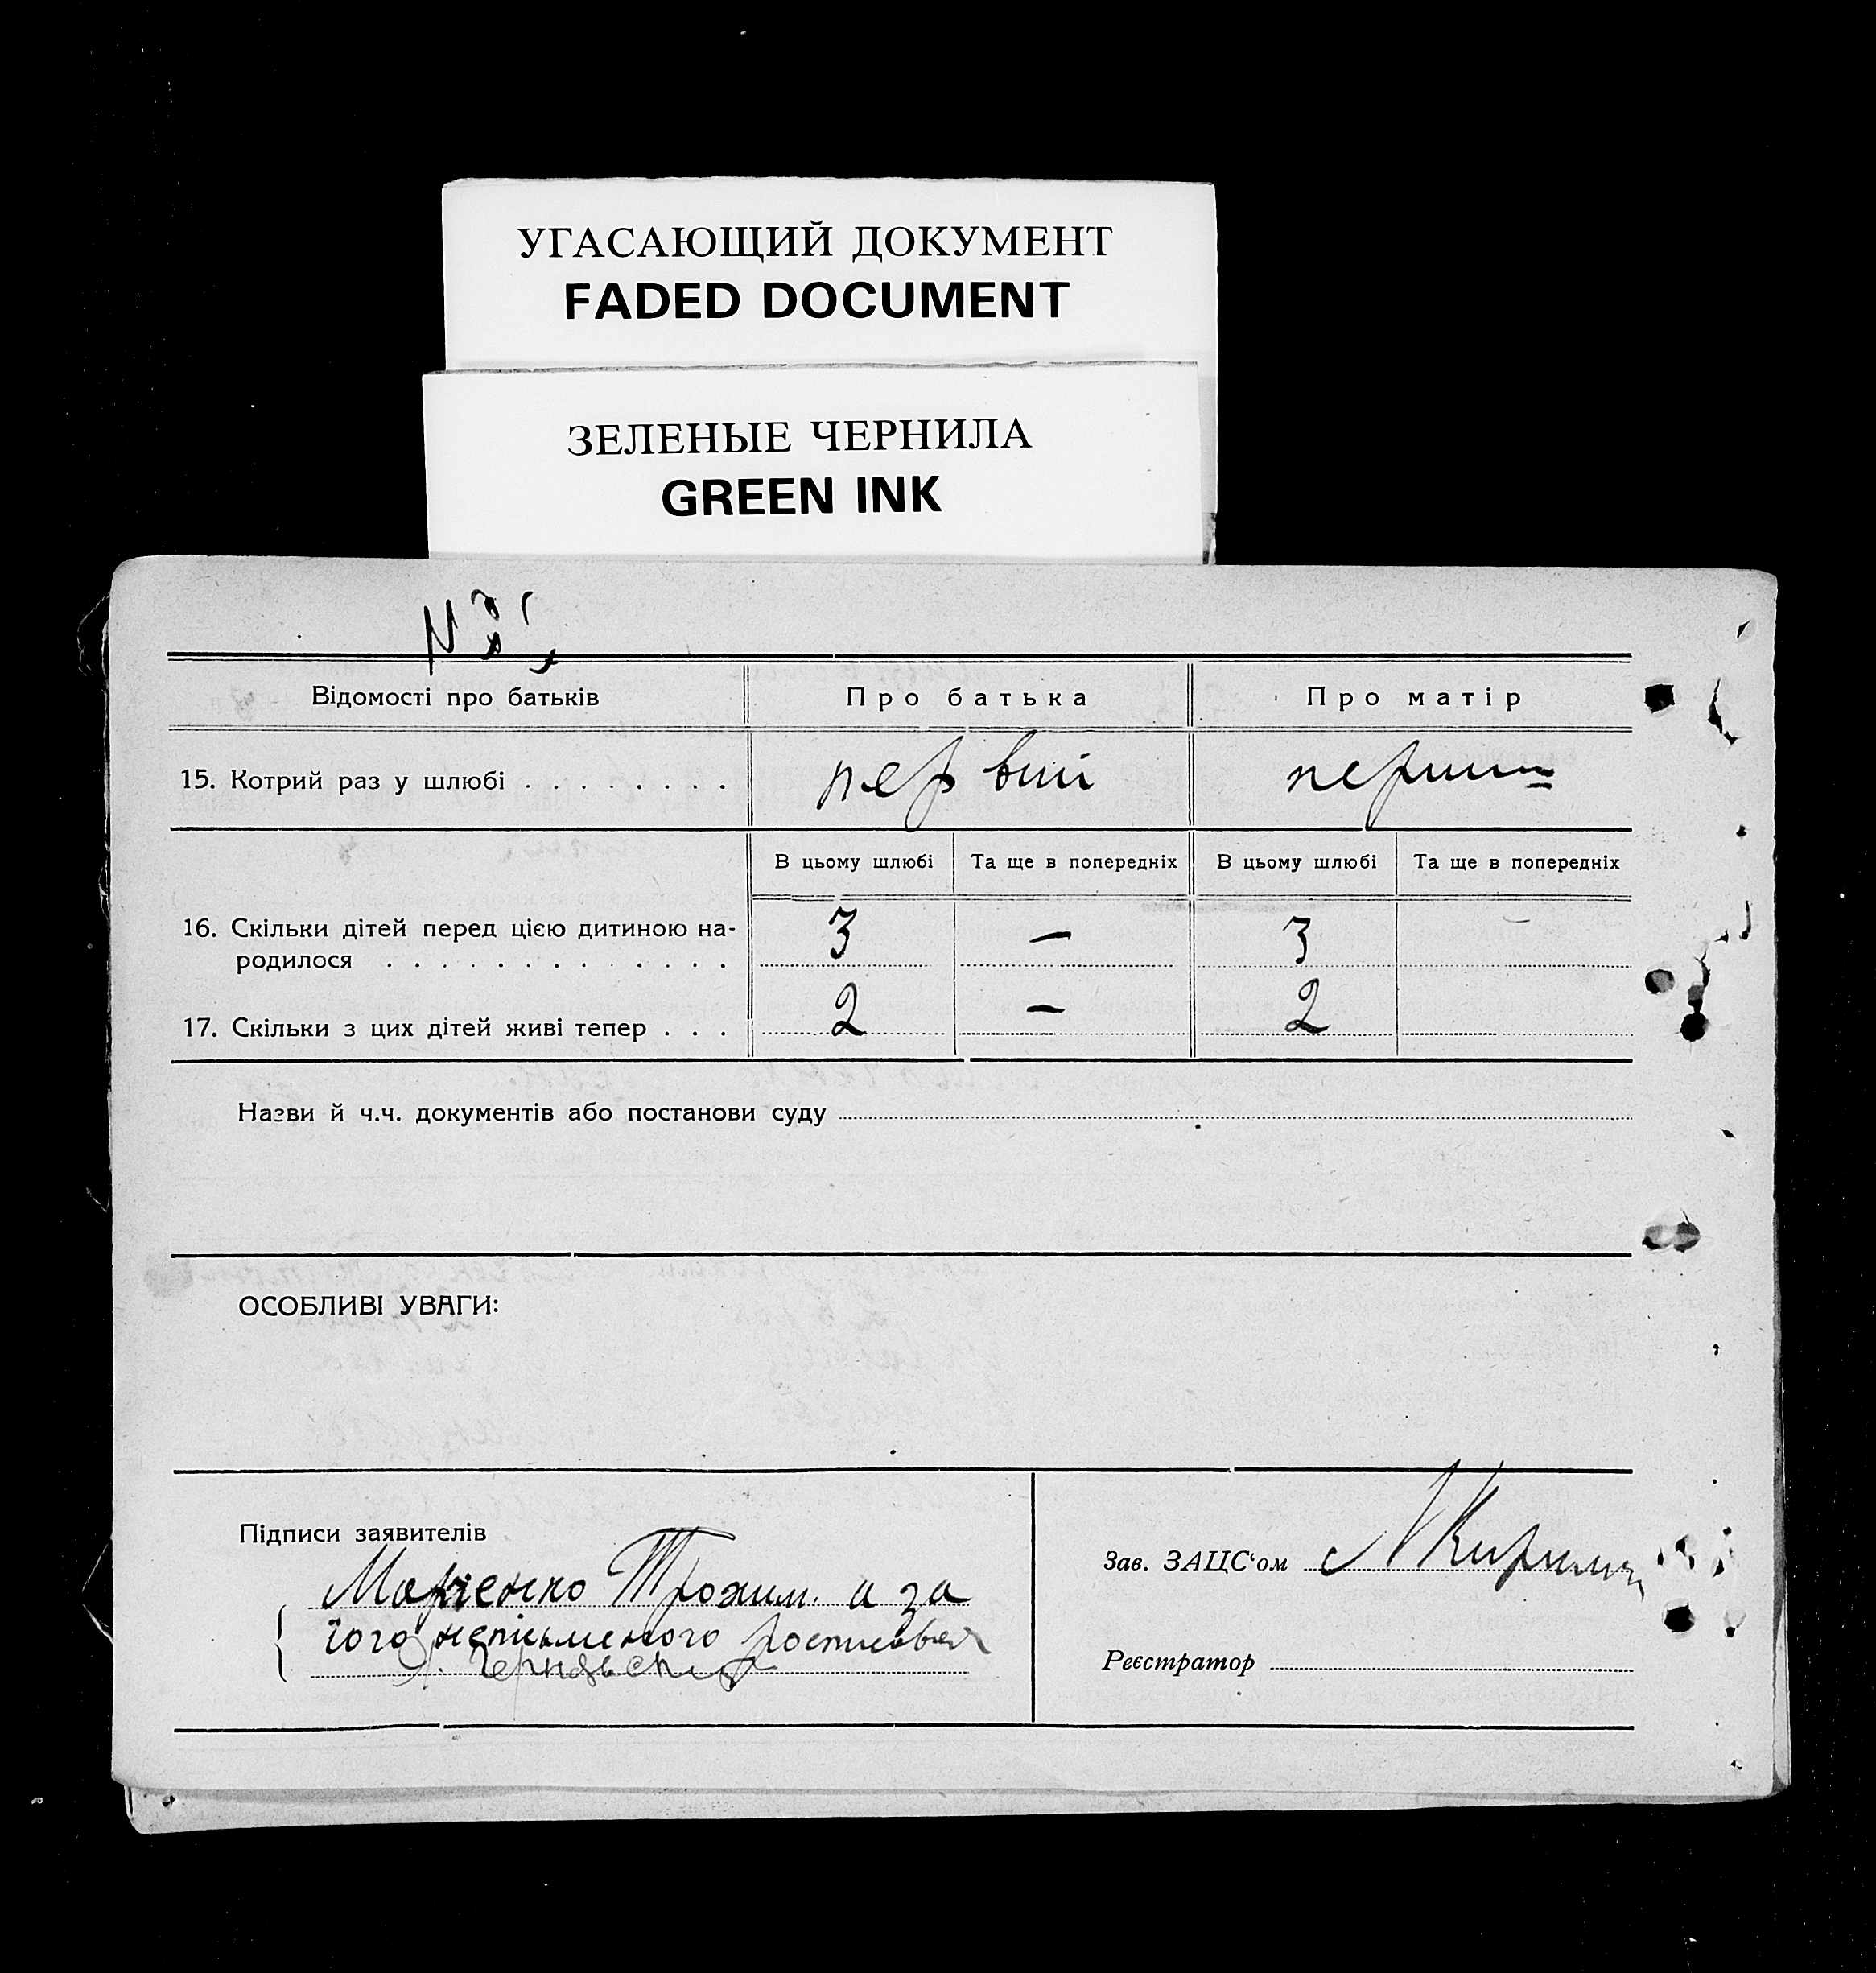 УГАСАЮЩИЙ ДОКУМЕНТ
FADED DOCUMENT
ЗЕЛЕНЫЕ ЧЕРНИЛА
GREEN INK
Відомості про батьків Про батька Про матір
15. Котрий раз у шлюбі . . . . . . . . первий перший
В цьому шлюбі Та ще в попередніх В цьому шлюбі Та ще в попередніх
16. Скільки дітей перед цією дитиною на- 3 — 3
родилося . . . . . . . . . . . . .
17. Скільки з цих дітей живі тепер . . . 2 — 2
Назви й ч.ч. документів або постанови суду
ОСОБЛИВІ УВАГИ:
Підписи заявителів
Марченко Трохим. а за
його неписьменого росписався
Зав. ЗАЦС‘ом
Реєстратор